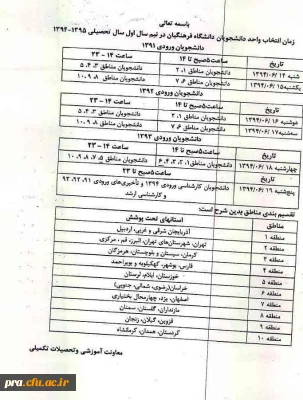 باسمه تعالی
زمان انتخاب واحد دانشجویان دانشگاه فرهنگیان در نیم سال اول سال تحصیلی ۱۳۹۵-۱۳۹۴
دانشجویان ورودی ۱۳۹۱
تاریخ ساعت ۵صبح تا ۱۴ ساعت ۱۴ - ۲۳
شنبه ۱۳۹۴/۰۶/۱۴ دانشجویان مناطق ۱، ۲ دانشجویان مناطق ۳، ۴، ۵
یکشنبه ۱۳۹۴/۰۶/۱۵ دانشجویان مناطق ۶، ۷ دانشجویان مناطق ۸، ۹، ۱۰
دانشجویان ورودی ۱۳۹۲
تاریخ ساعت ۵صبح تا ۱۴ ساعت ۱۴ - ۲۳
دوشنبه ۱۳۹۴/۰۶/۱۶ دانشجویان مناطق ۱، ۲ دانشجویان مناطق ۳، ۴، ۵
سه‌شنبه ۱۳۹۴/۰۶/۱۷ دانشجویان مناطق ۶، ۷ دانشجویان مناطق ۸، ۹، ۱۰
دانشجویان ورودی ۱۳۹۳
تاریخ ساعت ۵صبح تا ۱۴ ساعت ۱۴ - ۲۳
چهارشنبه ۱۳۹۴/۰۶/۱۸ دانشجویان مناطق ۱، ۲، ۳، ۴، ۶ دانشجویان مناطق ۵، ۷، ۸، ۹، ۱۰
پنج‌شنبه ۱۳۹۴/۰۶/۱۹ دانشجویان کارشناسی ورودی ۱۳۹۴ و تأخیری‌های ورودی ۹۱، ۹۲، ۹۳
و کارشناسی ارشد
تقسیم بندی مناطق بدین شرح است:
مناطق استانهای تحت پوشش
منطقه ۱ آذربایجان شرقی و غربی، اردبیل
منطقه ۲ تهران، شهرستان‌های تهران، البرز، قم، مرکزی
منطقه ۳ کرمان، سیستان و بلوچستان، هرمزگان
منطقه ۴ فارس، بوشهر، کهکیلویه و بویراحمد
منطقه ۵ خوزستان، ایلام، لرستان
منطقه ۶ خراسان(رضوی، شمالی، جنوبی)
منطقه ۷ اصفهان، یزد، چهارمحال بختیاری
منطقه ۸ مازندران، گلستان، سمنان
منطقه ۹ قزوین، گیلان، زنجان
منطقه ۱۰ کردستان، همدان، کرمانشاه
معاونت آموزشی وتحصیلات تکمیلی
pra.cfu.ac.ir